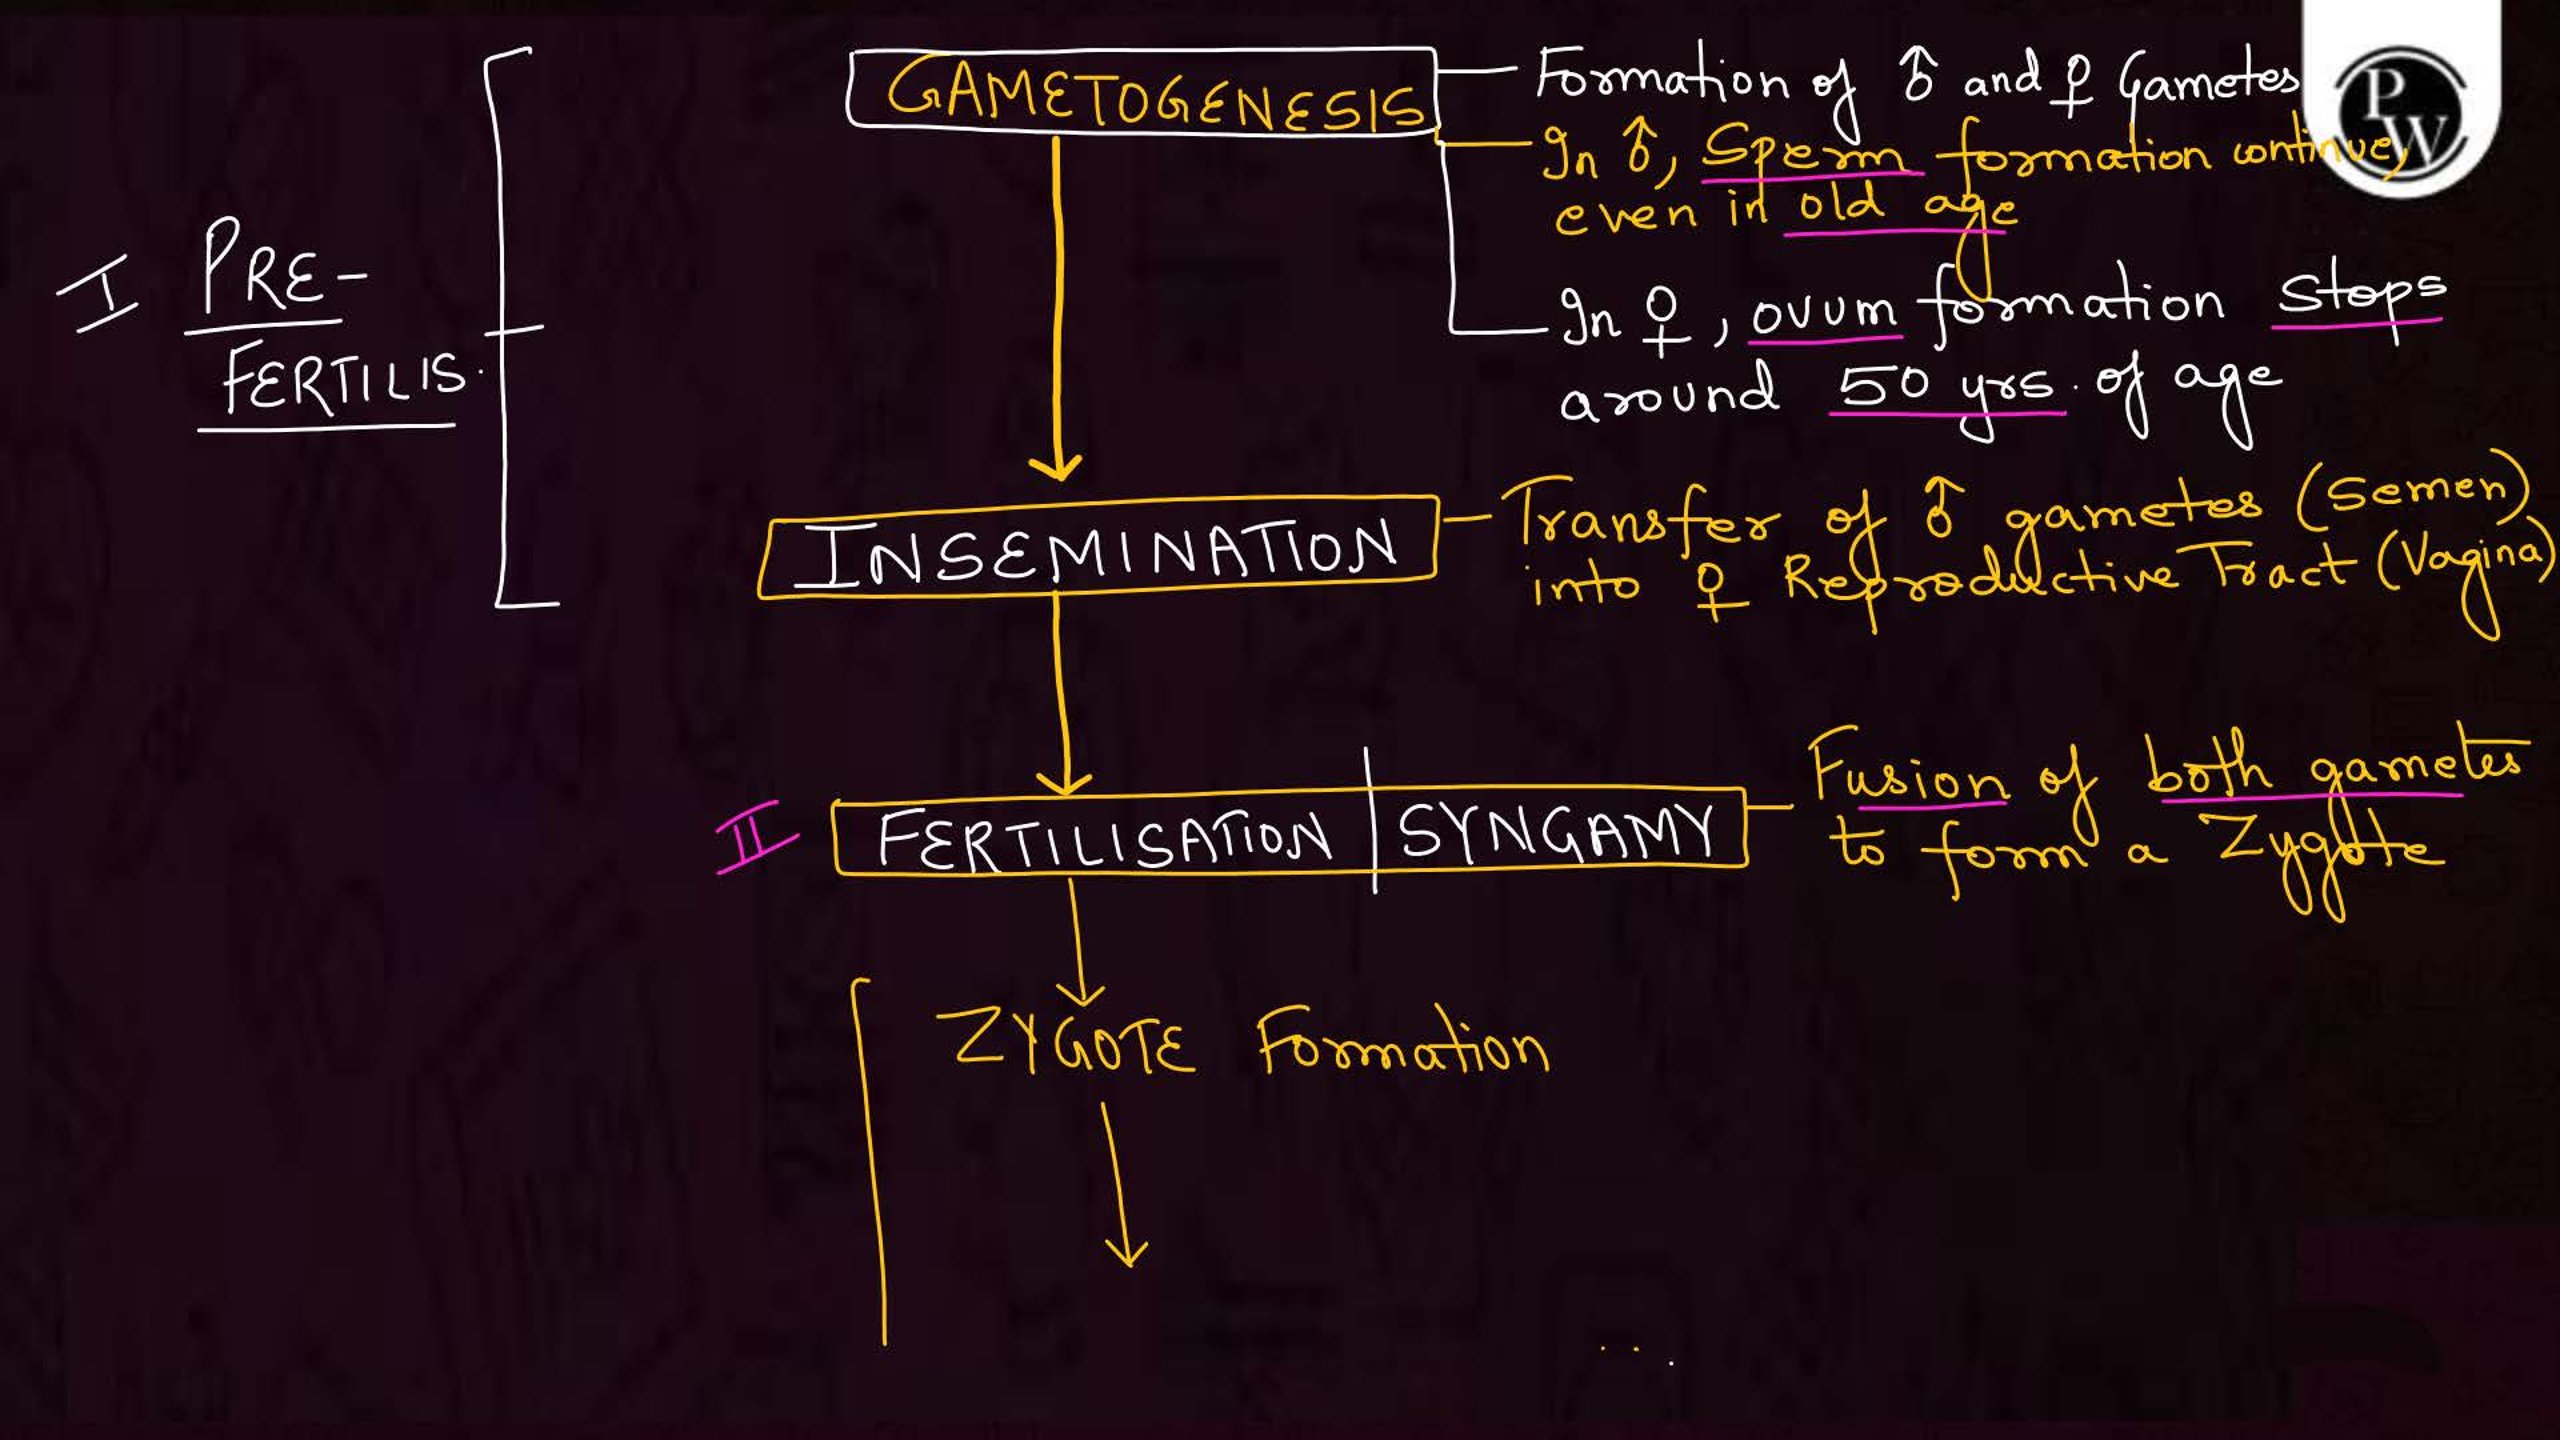 GAMETOGENESIS
Formation of ♂ and ♀ Gametes
In ♂, Sperm formation continue,
even in old age
In ♀, ovum formation stops
around 50 yrs. of age
I PRE-
FERTILIS.
INSEMINATION
Transfer of ♂ gametes (Semen)
into ♀ Reproductive Tract (Vagina)
II FERTILISATION | SYNGAMY
Fusion of both gametes
to form a Zygote
ZYGOTE Formation
PW